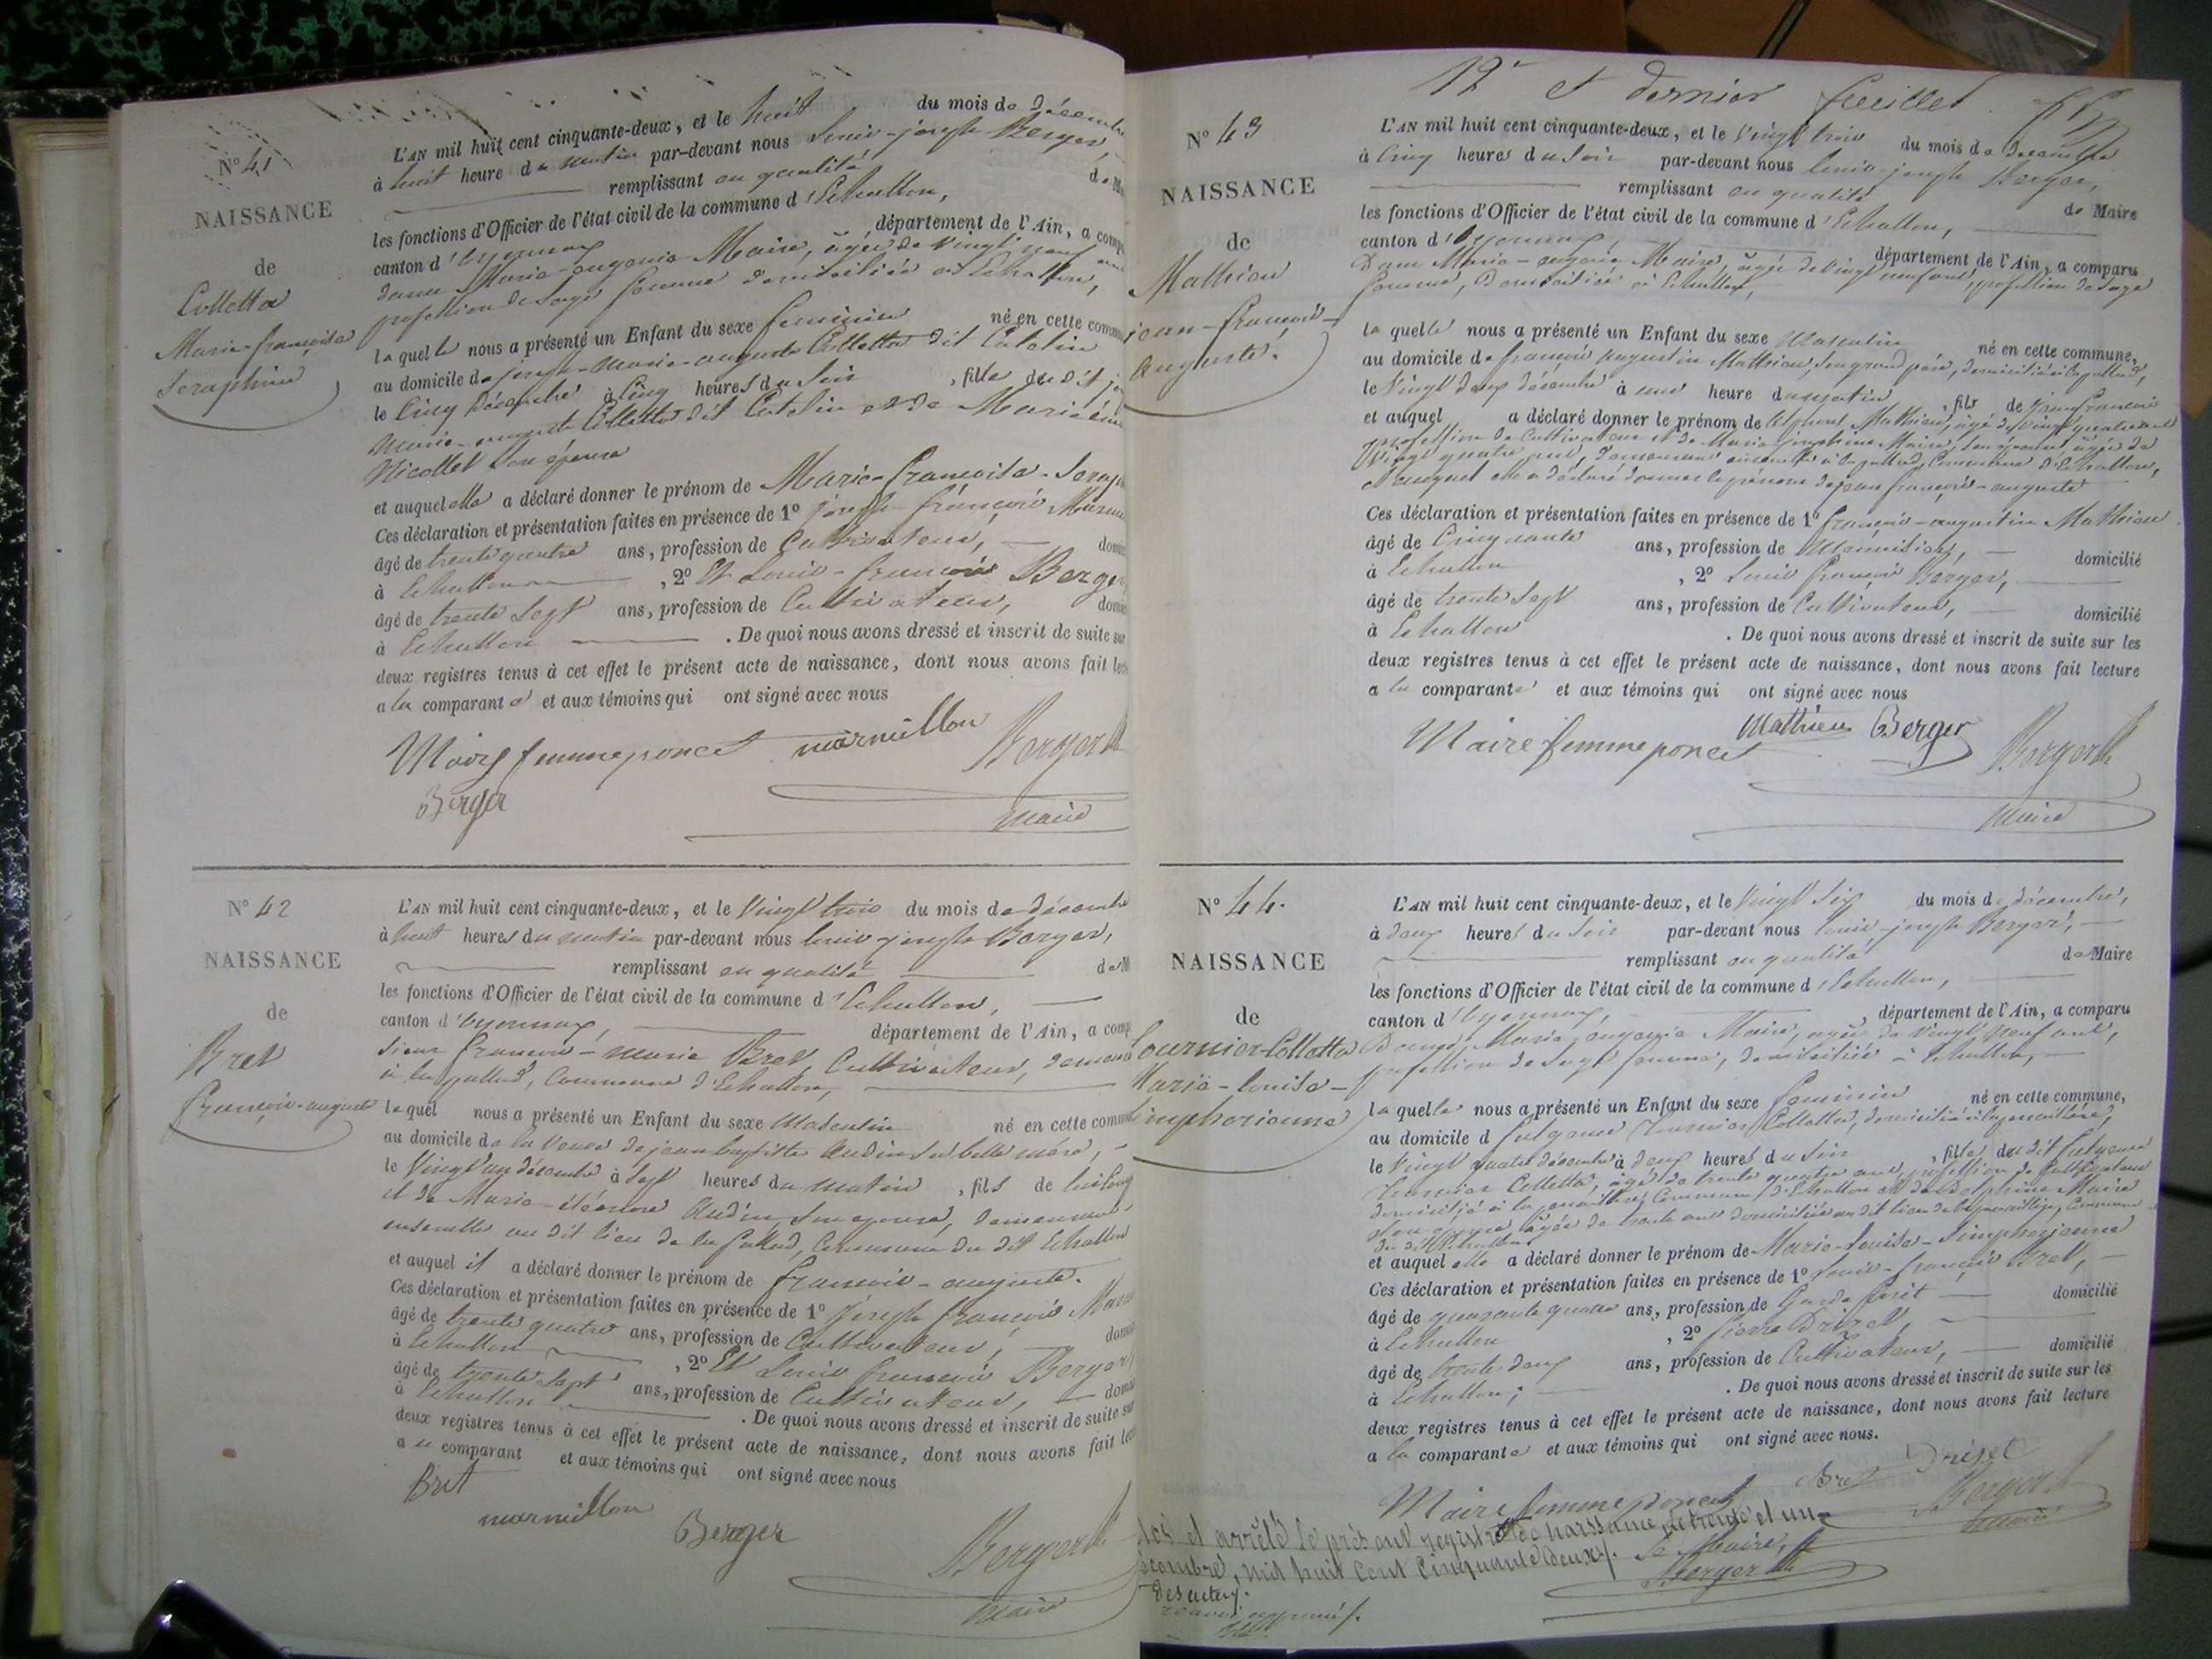 N° 41
NAISSANCE
de
Colletta
Marie-françoise
Seraphine
L'AN mil huit cent cinquante-deux, et le huit du mois de Décembre
à huit heure du matin par-devant nous Louis-joseph Berger,
remplissant en qualité de
les fonctions d'Officier de l'état civil de la commune d'Echallon,
canton d'Oyonnax département de l'Ain, a comp
dame Marie-eugenie Maire, âgée de vingt neuf ans
profession de sage femme domiciliée à Echallon,
laquelle nous a présenté un Enfant du sexe feminin né en cette comm
au domicile de joseph-marie-auguste Colletta dit Catelin
le Cinq Décembre à Cinq heures du soir, fille du dit
marie-auguste Colletta dit Catelin et de Marie
Nicollet son épouse
et auquel elle a déclaré donner le prénom de Marie-françoise-Serap
Ces déclaration et présentation faites en présence de 1° joseph-françois
âgé de trente quatre ans, profession de Cultivateur, domi
à Echallon, 2° Et Louis-françois Berger
âgé de trente sept ans, profession de Cultivateur, domi
à Echallon. De quoi nous avons dressé et inscrit de suite sur
deux registres tenus à cet effet le présent acte de naissance, dont nous avons fait lec
a la comparante et aux témoins qui ont signé avec nous
Maire femme poncet marmillon Berger
Berger
maire
N° 42
NAISSANCE
de
Bret
françois-auguste
L'AN mil huit cent cinquante-deux, et le Vingt trois du mois de décembre
à huit heures du matin par-devant nous louis-joseph Berger,
remplissant en qualité de M
les fonctions d'Officier de l'état civil de la commune d'Echallon,
canton d'Oyonnax, département de l'Ain, a comp
Sieur françois-marie Bret Cultivateur, demeura
à lapallud, Commune d'Echallon,
lequel nous a présenté un Enfant du sexe Masculin né en cette comm
au domicile de la Veuve de jean baptiste Audin sa belle mère,
le Vingt un décembre à sept heures du matin, fils de
et de Marie-éléonore Audin, son epouse, demeurant
ensemble au dit lieu de la pallud, Commune du dit Echallon
et auquel il a déclaré donner le prénom de françois-auguste.
Ces déclaration et présentation faites en présence de 1° Joseph françois Marm
âgé de trente quatre ans, profession de Cultivateur,
à Echallon, 2° Et Louis françois Berger
âgé de trente sept ans, profession de Cultivateur, domi
à Echallon. De quoi nous avons dressé et inscrit de suite sur
deux registres tenus à cet effet le présent acte de naissance, dont nous avons fait lec
a u comparant et aux témoins qui ont signé avec nous
Bret
marmillon
Berger
Berger
maire
12e et dernier feuillet
N° 43
NAISSANCE
de
Mathieu
jean-françois-
Auguste.
L'AN mil huit cent cinquante-deux, et le Vingt trois du mois de Décembre
à Cinq heures du Soir par-devant nous louis-joseph Berger,
remplissant en qualité de Maire
les fonctions d'Officier de l'état civil de la commune d'Echallon,
canton d'Oyonnax, département de l'Ain, a comparu
Dame Marie-eugenie Maire, âgée de Vingt neuf ans, profession de sage
femme, Domiciliée à Echallon,
laquelle nous a présenté un Enfant du sexe Masculin né en cette commune,
au domicile de françois augustin Mathieu, son grand père, domicilié à lapallud,
le Vingt deux décembre à une heure du matin, fils de jean françois
et auquel a déclaré donner le prénom de Mathieu, âgé de vingt quatre ans
profession de Cultivateur et de Marie josephine Maire, son épouse, âgée de
Vingt quatre ans, demeurant ensemble à lapallud, Commune d'Echallon,
et auquel elle a déclaré donner le prénom de jean françois-auguste
Ces déclaration et présentation faites en présence de 1° françois-augustin Mathieu
âgé de Cinquante ans, profession de Menuisier, domicilié
à Echallon, 2° Louis françois Berger,
âgé de trente sept ans, profession de Cultivateur, domicilié
à Echallon. De quoi nous avons dressé et inscrit de suite sur les
deux registres tenus à cet effet le présent acte de naissance, dont nous avons fait lecture
a la comparante et aux témoins qui ont signé avec nous
Maire femme poncet Mathieu Berger Berger
maire
N° 44.
NAISSANCE
de
Tournier-Colletta
Marie-louise-
simphorienne
L'AN mil huit cent cinquante-deux, et le Vingt six du mois de décembre,
à deux heures du Soir par-devant nous louis-joseph Berger,
remplissant en qualité de Maire
les fonctions d'Officier de l'état civil de la commune d'Echallon,
canton d'Oyonnax, département de l'Ain, a comparu
Dame Marie-eugenie Maire, agée de Vingt neuf ans,
profession de sage femme, domiciliée à Echallon,
laquelle nous a présenté un Enfant du sexe feminin né en cette commune,
au domicile d fulgence Tournier Colletta, domicilié à
le Vingt quatre décembre à deux heures du soir, fille du dit fulgence
Tournier Colletta, âgé de trente quatre ans, profession de Cultivateur
domicilié à Commune d'Echallon et de Delphine Maire
son epouse, âgée de trente ans domiciliée au dit lieu de Commune
du dit Echallon
et auquel elle a déclaré donner le prénom de Marie-Louise-Simphorienne
Ces déclaration et présentation faites en présence de 1° Louis-françois Bret,
âgé de quarante quatre ans, profession de Garde forêt domicilié
à Echallon, 2° pierre Drizet,
âgé de trente deux ans, profession de Cultivateur, domicilié
à Echallon; De quoi nous avons dressé et inscrit de suite sur les
deux registres tenus à cet effet le présent acte de naissance, dont nous avons fait lecture
a la comparante et aux témoins qui ont signé avec nous.
Maire femme poncet Bret Drizet Berger
maire
Clos et arrêté le présent registre de naissance le trente et un
décembre, mil huit cent cinquante deux. Le Maire,
Berger